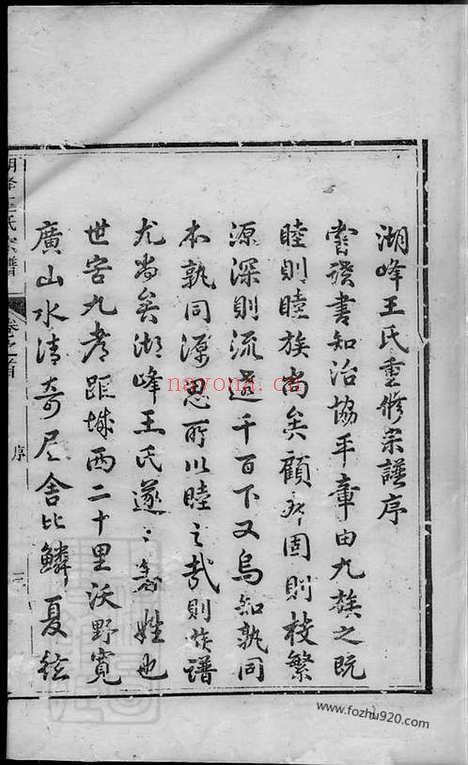 湖峰王氏重修宗譜序
嘗證書知治協平章由九族之既
睦則睦族尚矣顧本固則枝繁
源深則流遠千百下又烏知孰同
本孰同源思所以睦之哉則族譜
尤尚矣湖峰王氏遂之著姓也
世居九都距城西二十里沃野寬
廣山水清奇居舍比鱗夏絃
湖峰王氏宗譜
卷之首
序
nayona.cn
www.fozhu920.com